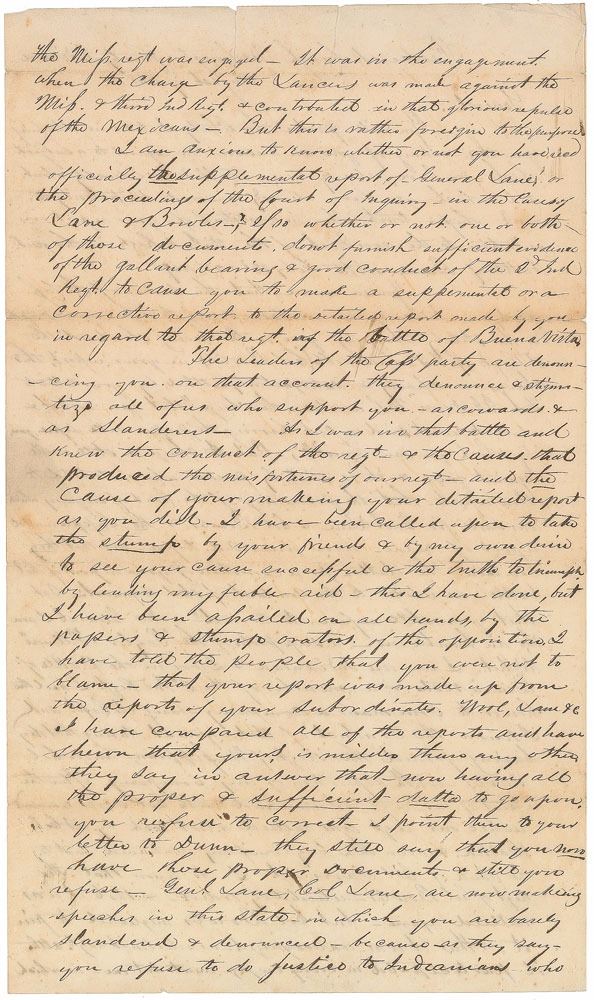 the Miss. regt was engaged - It was in the engagement
when the charge by the Lancers was made against the
Miss. & third Ind Regt. & contributed in that glorious repulse
of the Mexicans - But this is rather foreign to the purpose
I am anxious to know whether or not you have recd
officially the supplemental report of General Lane, or
the proceedings of the Court of Inquiry in the Cases of
Lane & Bowles -? If so whether or not one or both
of those documents do not furnish sufficient evidence
of the gallant bearing & good conduct of the 2d Ind
Regt. to cause you to make a supplemental or a
corrective report to the detailed report made by you
in regard to that regt. in the battle of Buena Vista
The Leaders of the Cass party are denoun-
-cing you on that account. they denounce & stigma-
tize all of us who support you - as cowards &
as Slanderers As I was in that battle and
knew the conduct of the regt - & the causes that
produced the misfortunes of our regt - and the
cause of your makeing your detailed report
as you did - I have been called upon to take
the stump by your friends & by my own desire
to see your cause successful & the truth to triumph
by lending my feeble aid - this I have done, but
I have been assailed on all hands, by the
papers & stump orators of the opposition, I
have told the people that you were not to
blame - that your report was made up from
the reports of your subordinates. Wool, Lane &c
I have compared all of the reports and have
shewn that yours is milder than any other
they say in answer that now having all
the proper & sufficient datta to go upon,
you refuse to correct I point them to your
letter to Dunn - they still say that you now
have these proper Documents & still you
refuse - Genl Lane, Col Lane, are now making
speeches in this state in which you are basely
slanderd & denounced - because as they say -
you refuse to do justice to Indianians who